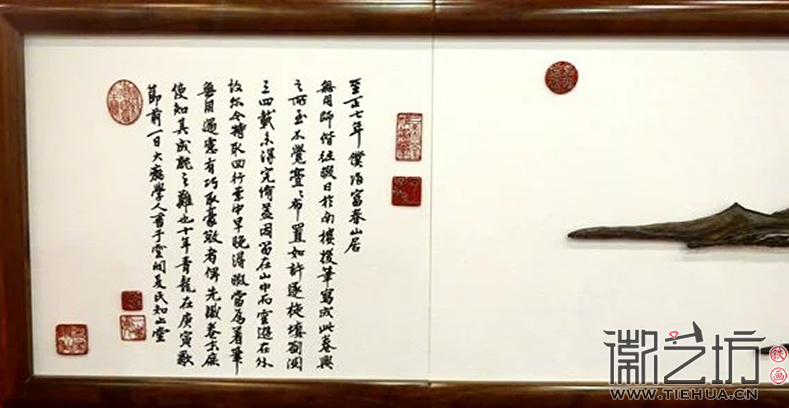 至正七年僕歸富春山居
無用師偕往暇日於南樓援筆寫成此卷興
之所至不覺亹〻布置如許逐旋填劄閱
三四載未得完備蓋因留在山中而雲遊在外
故尔今特取回行李中早晚得暇當為着筆
無用過慮有巧取豪敚者俾先識卷末庶
使知其成就之難也十年青龍在庚寅歜
節前一日大癡學人書于雲間夏氏知止堂
徽艺坊
铁画
WWW.TIEHUA.CN